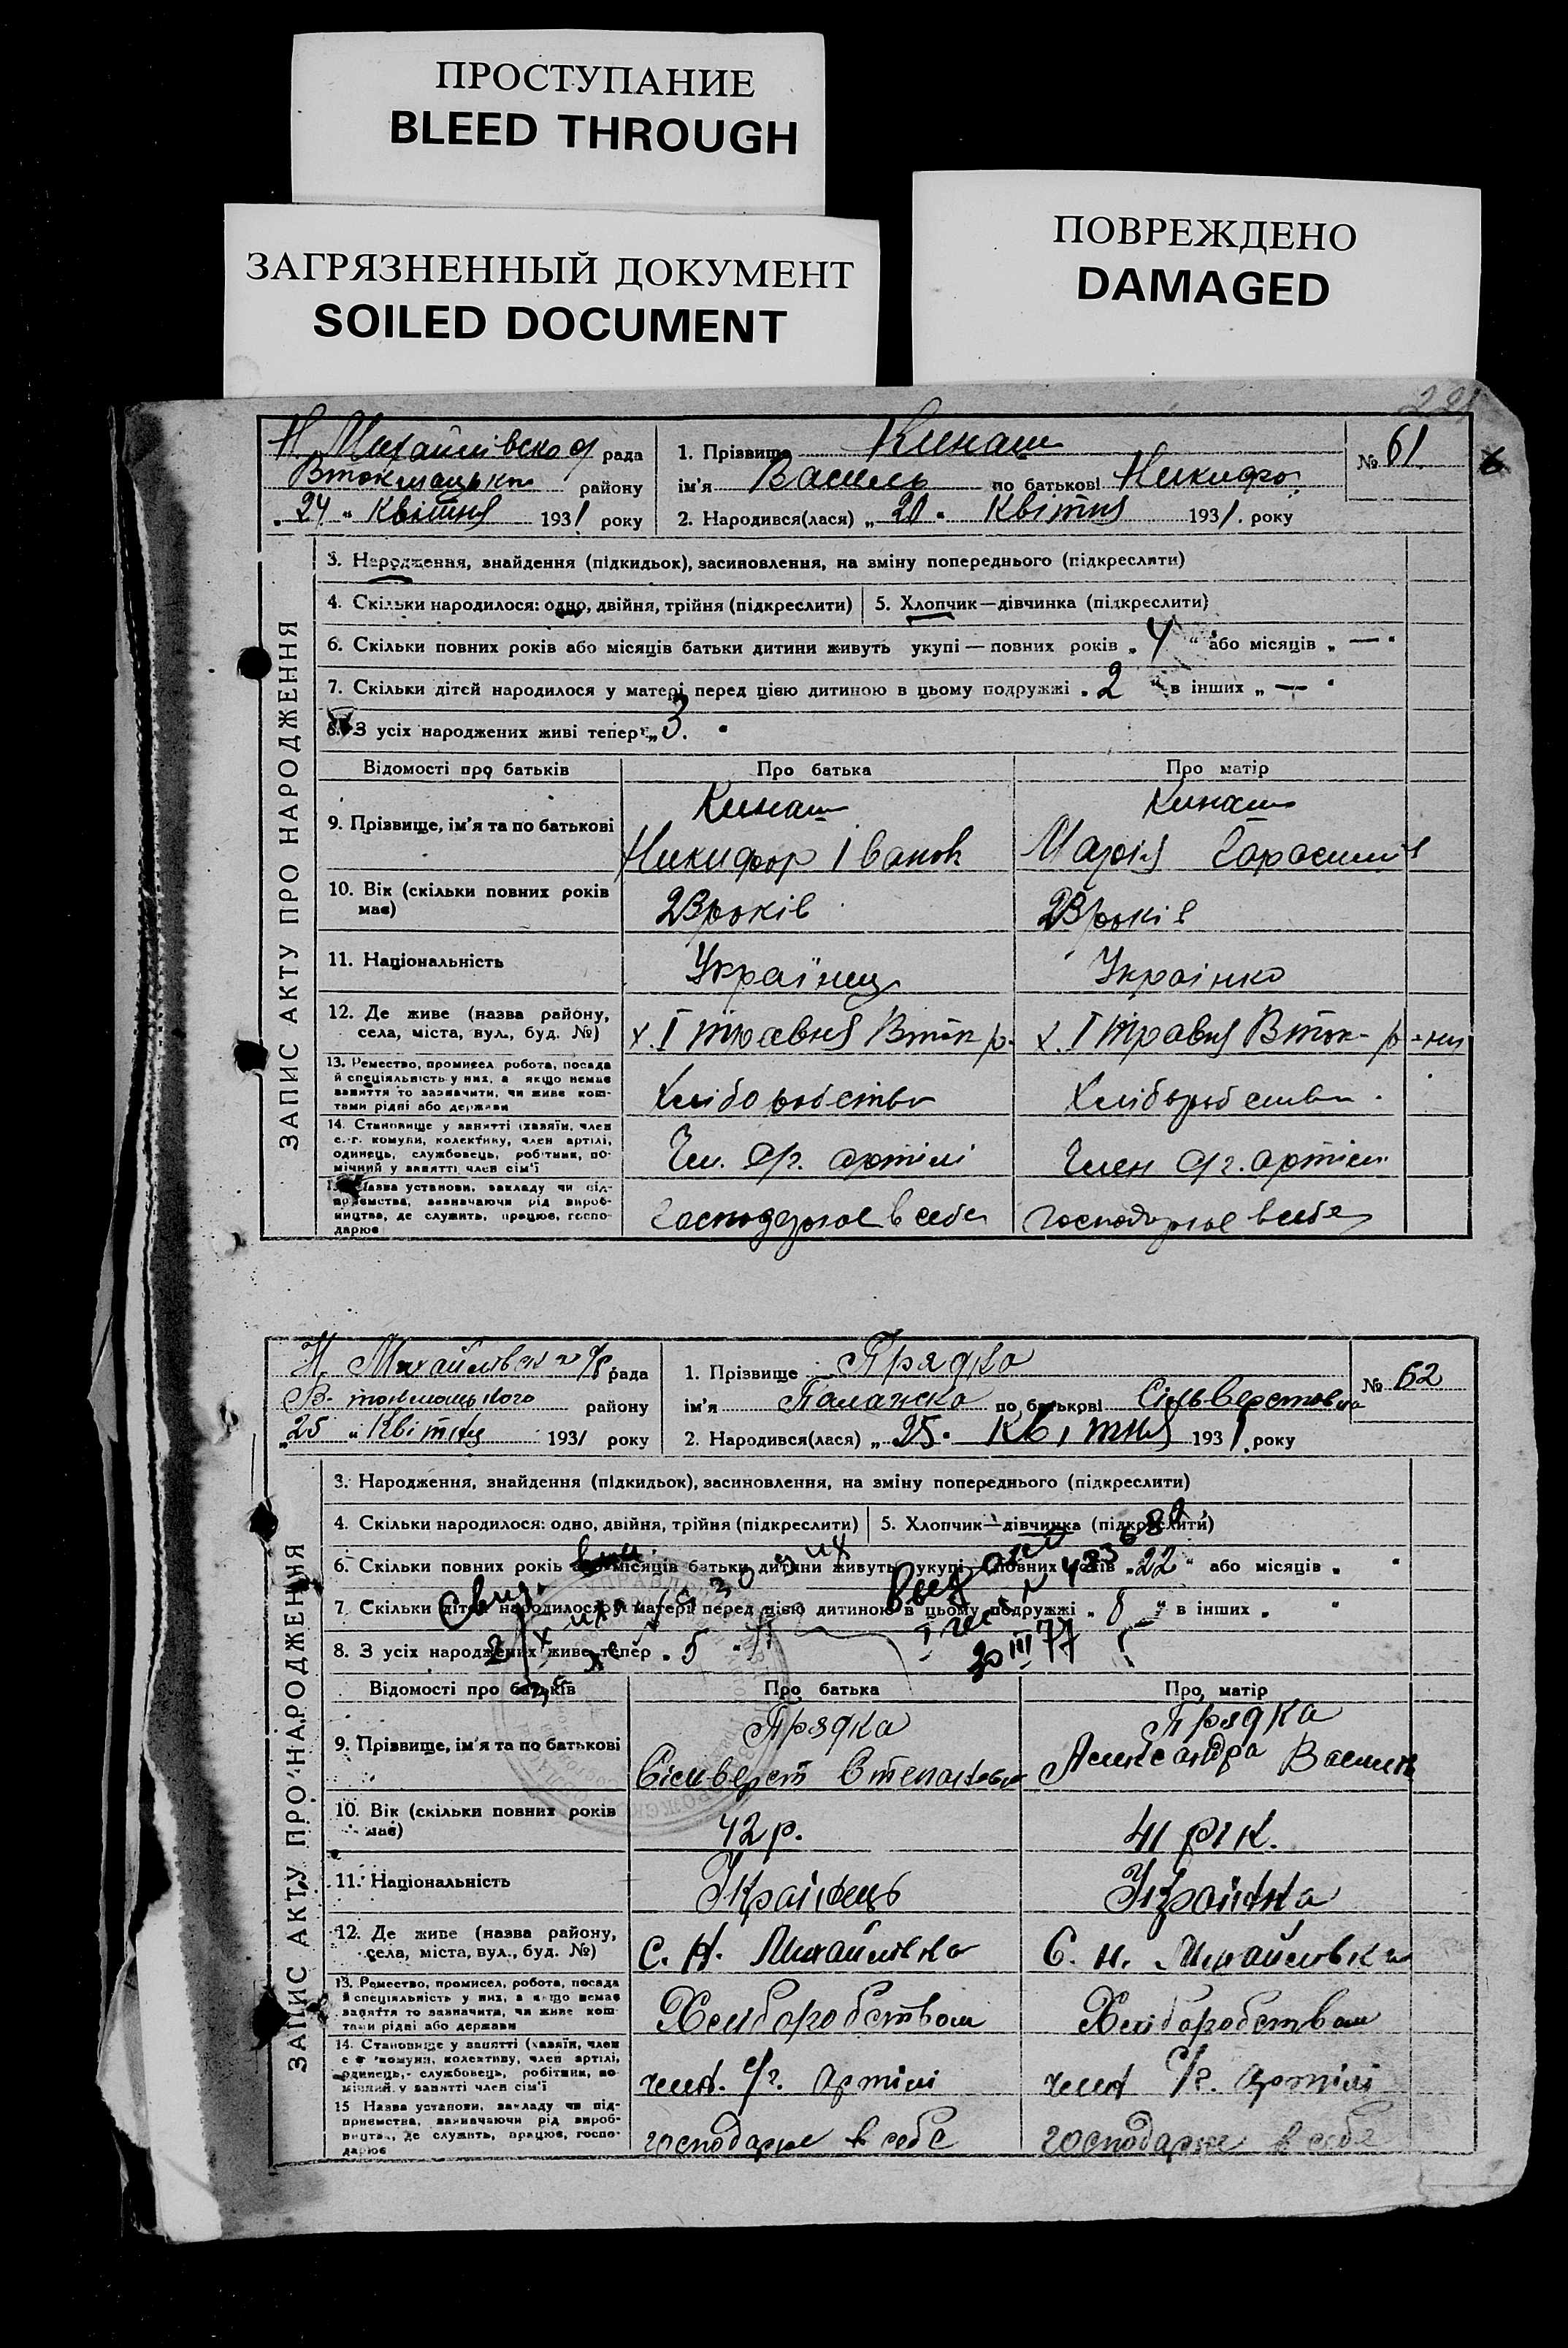 ПРОСТУПАНИЕ
BLEED THROUGH
ЗАГРЯЗНЕННЫЙ ДОКУМЕНТ
SOILED DOCUMENT
ПОВРЕЖДЕНО
DAMAGED
Н. Михайлівској рада
района району
„24 “ Квітня 1931 року
1. Прізвище Кинаш
ім'я Василь по батькові Никифо.
2. Народився(лася) „20“ Квітня 1931. року
№ 61
ЗАПИС АКТУ ПРО НАРОДЖЕННЯ
3. Народження, знайдення (підкидьок), засиновлення, на зміну попереднього (підкреслити)
4. Скільки народилося: одно, двійня, трійня (підкреслити)
5. Хлопчик—дівчинка (підкреслити)
6. Скільки повних років або місяців батьки дитини живуть укупі — повних років „4“ або місяців „—“
7. Скільки дітей народилося у матері перед цією дитиною в цьому подружжі „2“ в інших „—“
8. З усіх народжених живі тепер „3.“
Відомості про батьків
Про батька
Про матір
9. Прізвище, ім'я та по батькові
Кинаш
Никифор Іванов
Кинаш
Марія Гарасимів
10. Вік (скільки повних років має)
23 років
23 років
11. Національність
Українец
Украінка
12. Де живе (назва району, села, міста, вул., буд. №)
х. І травня Вток р.
х. І травня Вток- р-ну
13. Ремество, промисел робота, посада
й спеціяльність у них, а якщо немає
заняття то зазначити, чи живе кош-
тами рідні або держави
Хліборобство
Хліборобство.
14. Становище у занятті (хазяїн, член
с.-г. комуни, колективу, член артілі,
одинець, службовець, робітник, по-
мічний у занятті член сім'ї
Чл. с/г. артілі
Член с/г. артілі
15. Назва установи, закладу чи під-
приємства, зазначаючи рід вироб-
ництва, де служить, працює, госпо-
дарює
Господарює в себе
Господарює в себе
Н. Михайлівська с/р рада
В-токмацького району
„25 “ Квітня 1931 року
1. Прізвище Прядка
ім'я Палажка по батькові Сільверстовна
2. Народився(лася) „25“ Квітня 1931 року
№ 62
ЗАПИС АКТУ ПРО НАРОДЖЕННЯ
3. Народження, знайдення (підкидьок), засиновлення, на зміну попереднього (підкреслити)
4. Скільки народилося: одно, двійня, трійня (підкреслити)
5. Хлопчик—дівчинка (підкреслити)
6. Скільки повних років або місяців батьки дитини живуть укупі — повних років „22“ або місяців „ “
7. Скільки дітей народилося у матері перед цією дитиною в цьому подружжі „8“ в інших „ “
8. З усіх народжених живі тепер „5“
20 III 77
Відомості про батьків
Про батька
Про матір
9. Прізвище, ім'я та по батькові
Прядка
Сільверст Степанович
Прядка
Александра Василів
10. Вік (скільки повних років має)
42 р.
41 рік.
11. Національність
Українець
Українка
12. Де живе (назва району, села, міста, вул., буд. №)
С. Н. Михайлівка
С. Н. Михайлівка
13. Ремество, промисел, робота, посада
й спеціяльність у них, а якщо немає
заняття то зазначити, чи живе кош-
тами рідні або держави
Хліборобством
Хліборобством
14. Становище у занятті (хазяїн, член
с-г комуни, колективу, член артілі,
одинець, службовець, робітник, по-
мічний у занятті член сім'ї
член. с/г. артілі
член с/г. артілі
15 Назва установи, закладу чи під-
приємства, зазначаючи рід вироб-
ництва, де служить, працює, госпо-
дарює
господарює в себе
господарює в себе